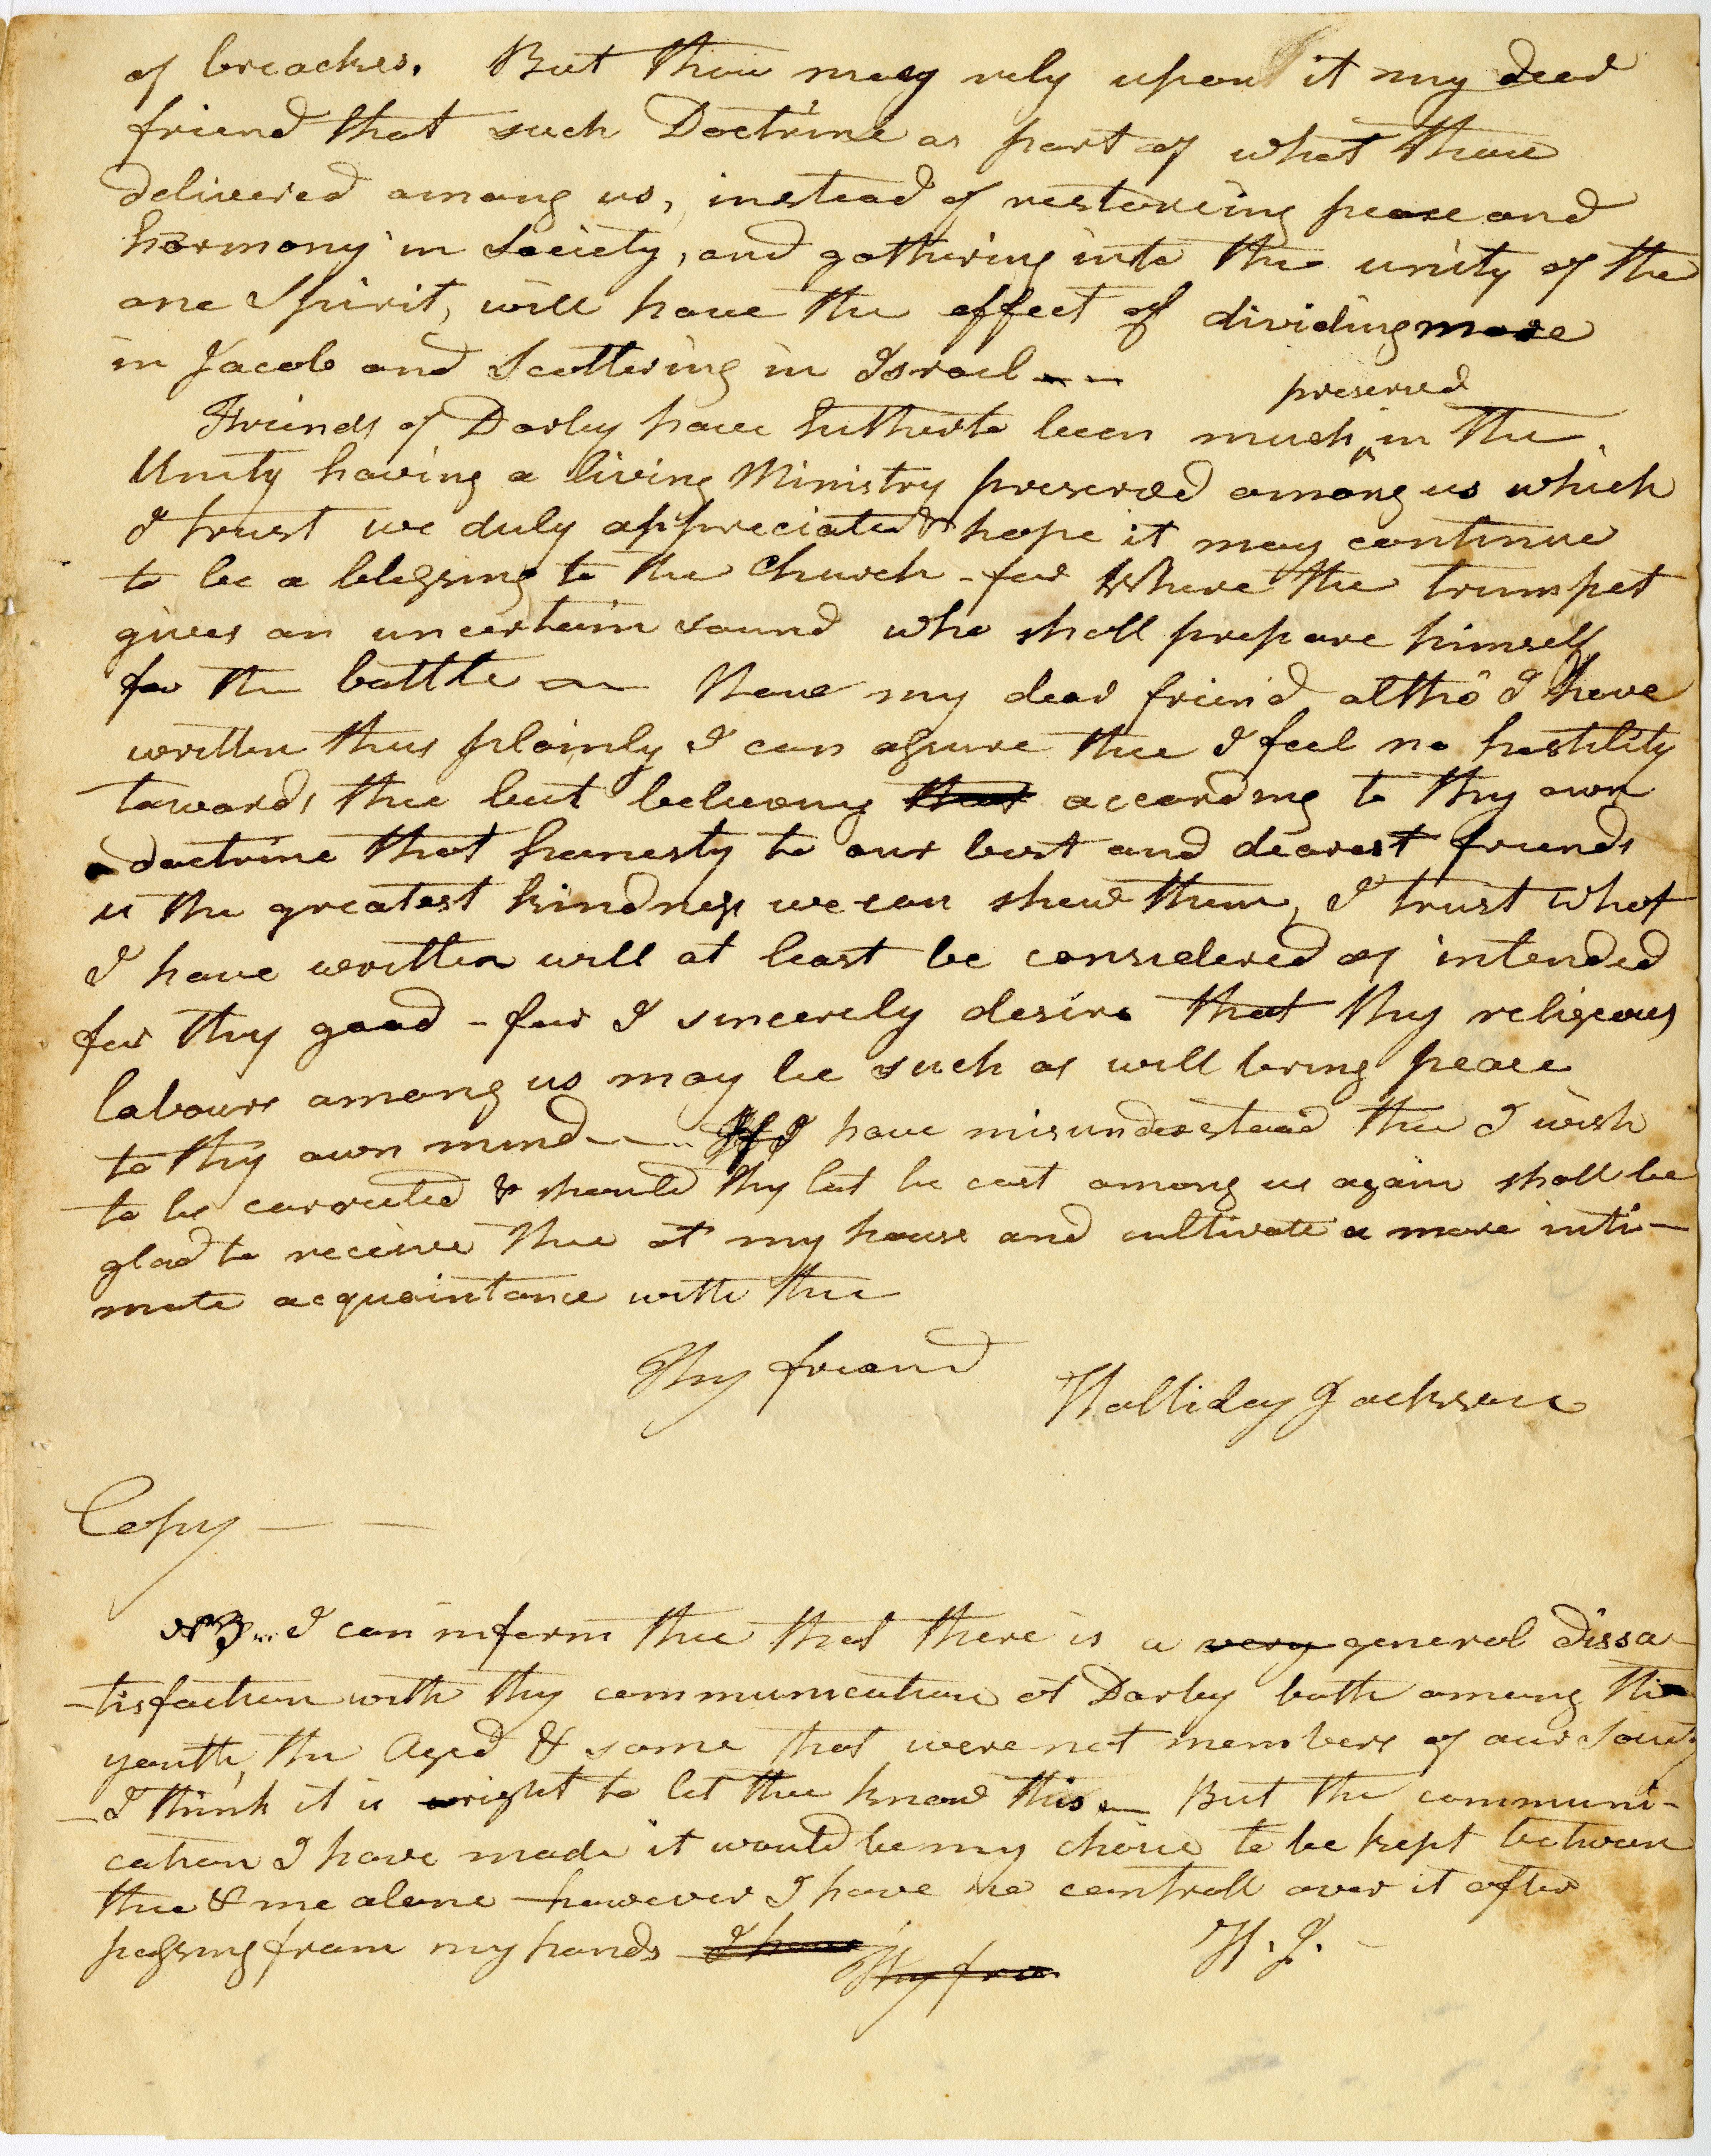 of breaches. But thou may rely upon it my dear
friend that such Doctrine as part of what thou
delivered among us, instead of restoreing peace and
harmony in Society, and gathering into the unity of the
one Spirit, will have the effect of dividing more
in Jacob and Scattering in Israel --
preserved
Friends of Darby have hitherto been much ^ in the
Unity having a living Ministry preserved among us which
I trust we duly appreciate & hope it may continue
to be a blessing to the Church - for Where the trumpet
gives an uncertain sound who shall prepare himself
for the battle — Now my dear friend altho I have
written thus plainly I can assure thee I feel no hostility
towards thee but believing that according to thy own
doctrine that honesty to our best and dearest friends
is the greatest kindness we can shew them, I trust what
I have written will at least be considered as intended
for thy good - for I sincerely desire that thy religious
labours among us may be such as will bring peace
to thy own mind -- If I have misunderstood thee I wish
to be corrected & should thy lot be cast among us again shall be
glad to receive thee at my house and cultivate a more inti-
mate acquaintance with thee
Thy friend
Halliday Jackson
Copy — —
NB... I can inform thee that there is a very general dissa-
-tisfaction with thy communication at Darby both among the
youth, the Aged & some that were not members of our Society
-I think it is right to let thee know this — But the communi-
cation I have made it would be my choice to be kept between
thee & me alone - however I have no controll over it after
passing from my hands I have
Thy frie
H. J. -